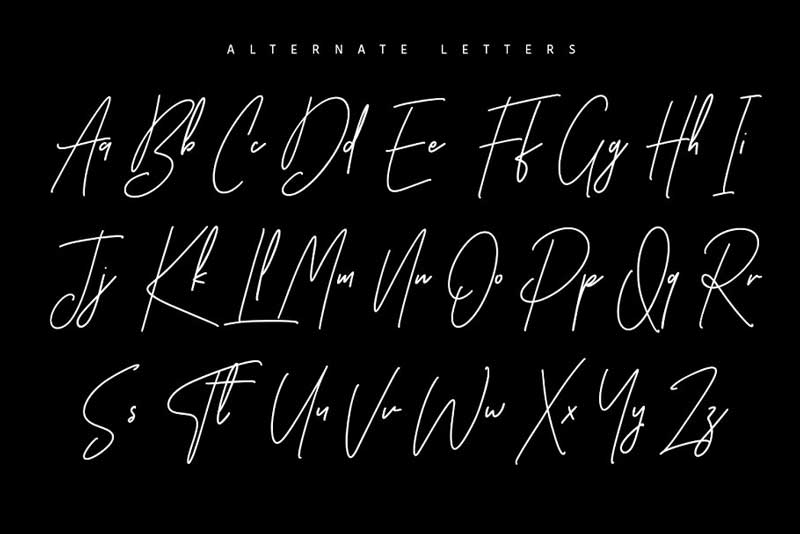 ALTERNATE LETTERS
Aa Bb Cc Dd Ee Ff Gg Hh Ii
Jj Kk Ll Mm Nn Oo Pp Qq Rr
Ss Tt Uu Vv Ww Xx Yy Zz